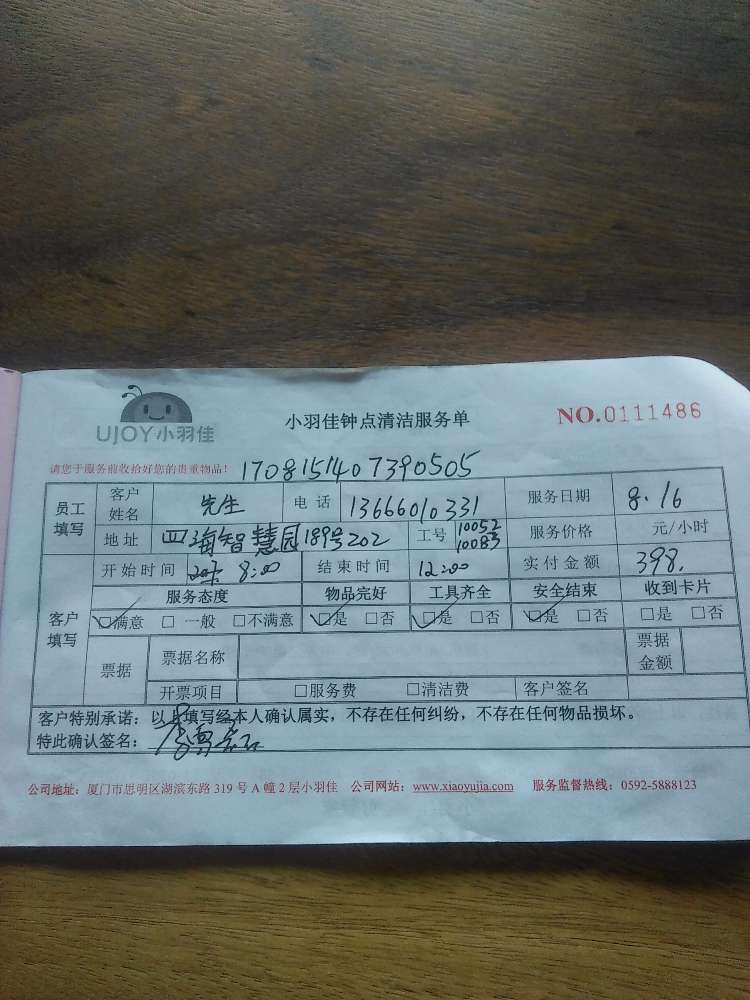 UJOY小羽佳
小羽佳钟点清洁服务单
NO.0111486
请您于服务前收拾好您的贵重物品！
1708151407390505
员工填写 客户姓名 先生 电话 13666010331 服务日期 8.16
地址 四海智慧园189号202 工号 10052 10083 服务价格 元/小时
客户填写 开始时间 8:00 结束时间 12:00 实付金额 398.
服务态度 物品完好 工具齐全 安全结束 收到卡片
☑满意 □一般 □不满意 ☑是 □否 ☑是 □否 ☑是 □否 □是 □否
票据 票据名称 票据金额
开票项目 □服务费 □清洁费 客户签名
客户特别承诺：以上填写经本人确认属实，不存在任何纠纷，不存在任何物品损坏。
特此确认签名：
公司地址：厦门市思明区湖滨东路319号A幢2层小羽佳 公司网站：www.xiaoyujia.com 服务监督热线：0592-5888123